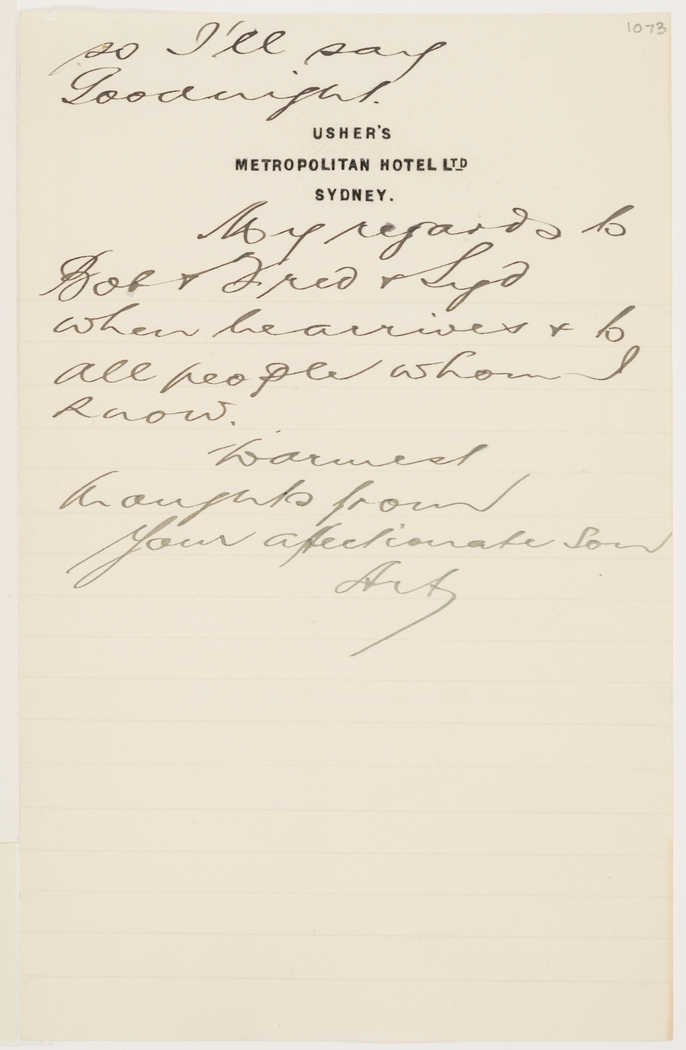 1073
so I'll say
Goodnight.
USHER'S
METROPOLITAN HOTEL LTD
SYDNEY.
My regards to
Bob & Fred & Syd
when he arrives & to
all people whom I
know.
Warmest
thoughts from
Your affectionate Son
Art